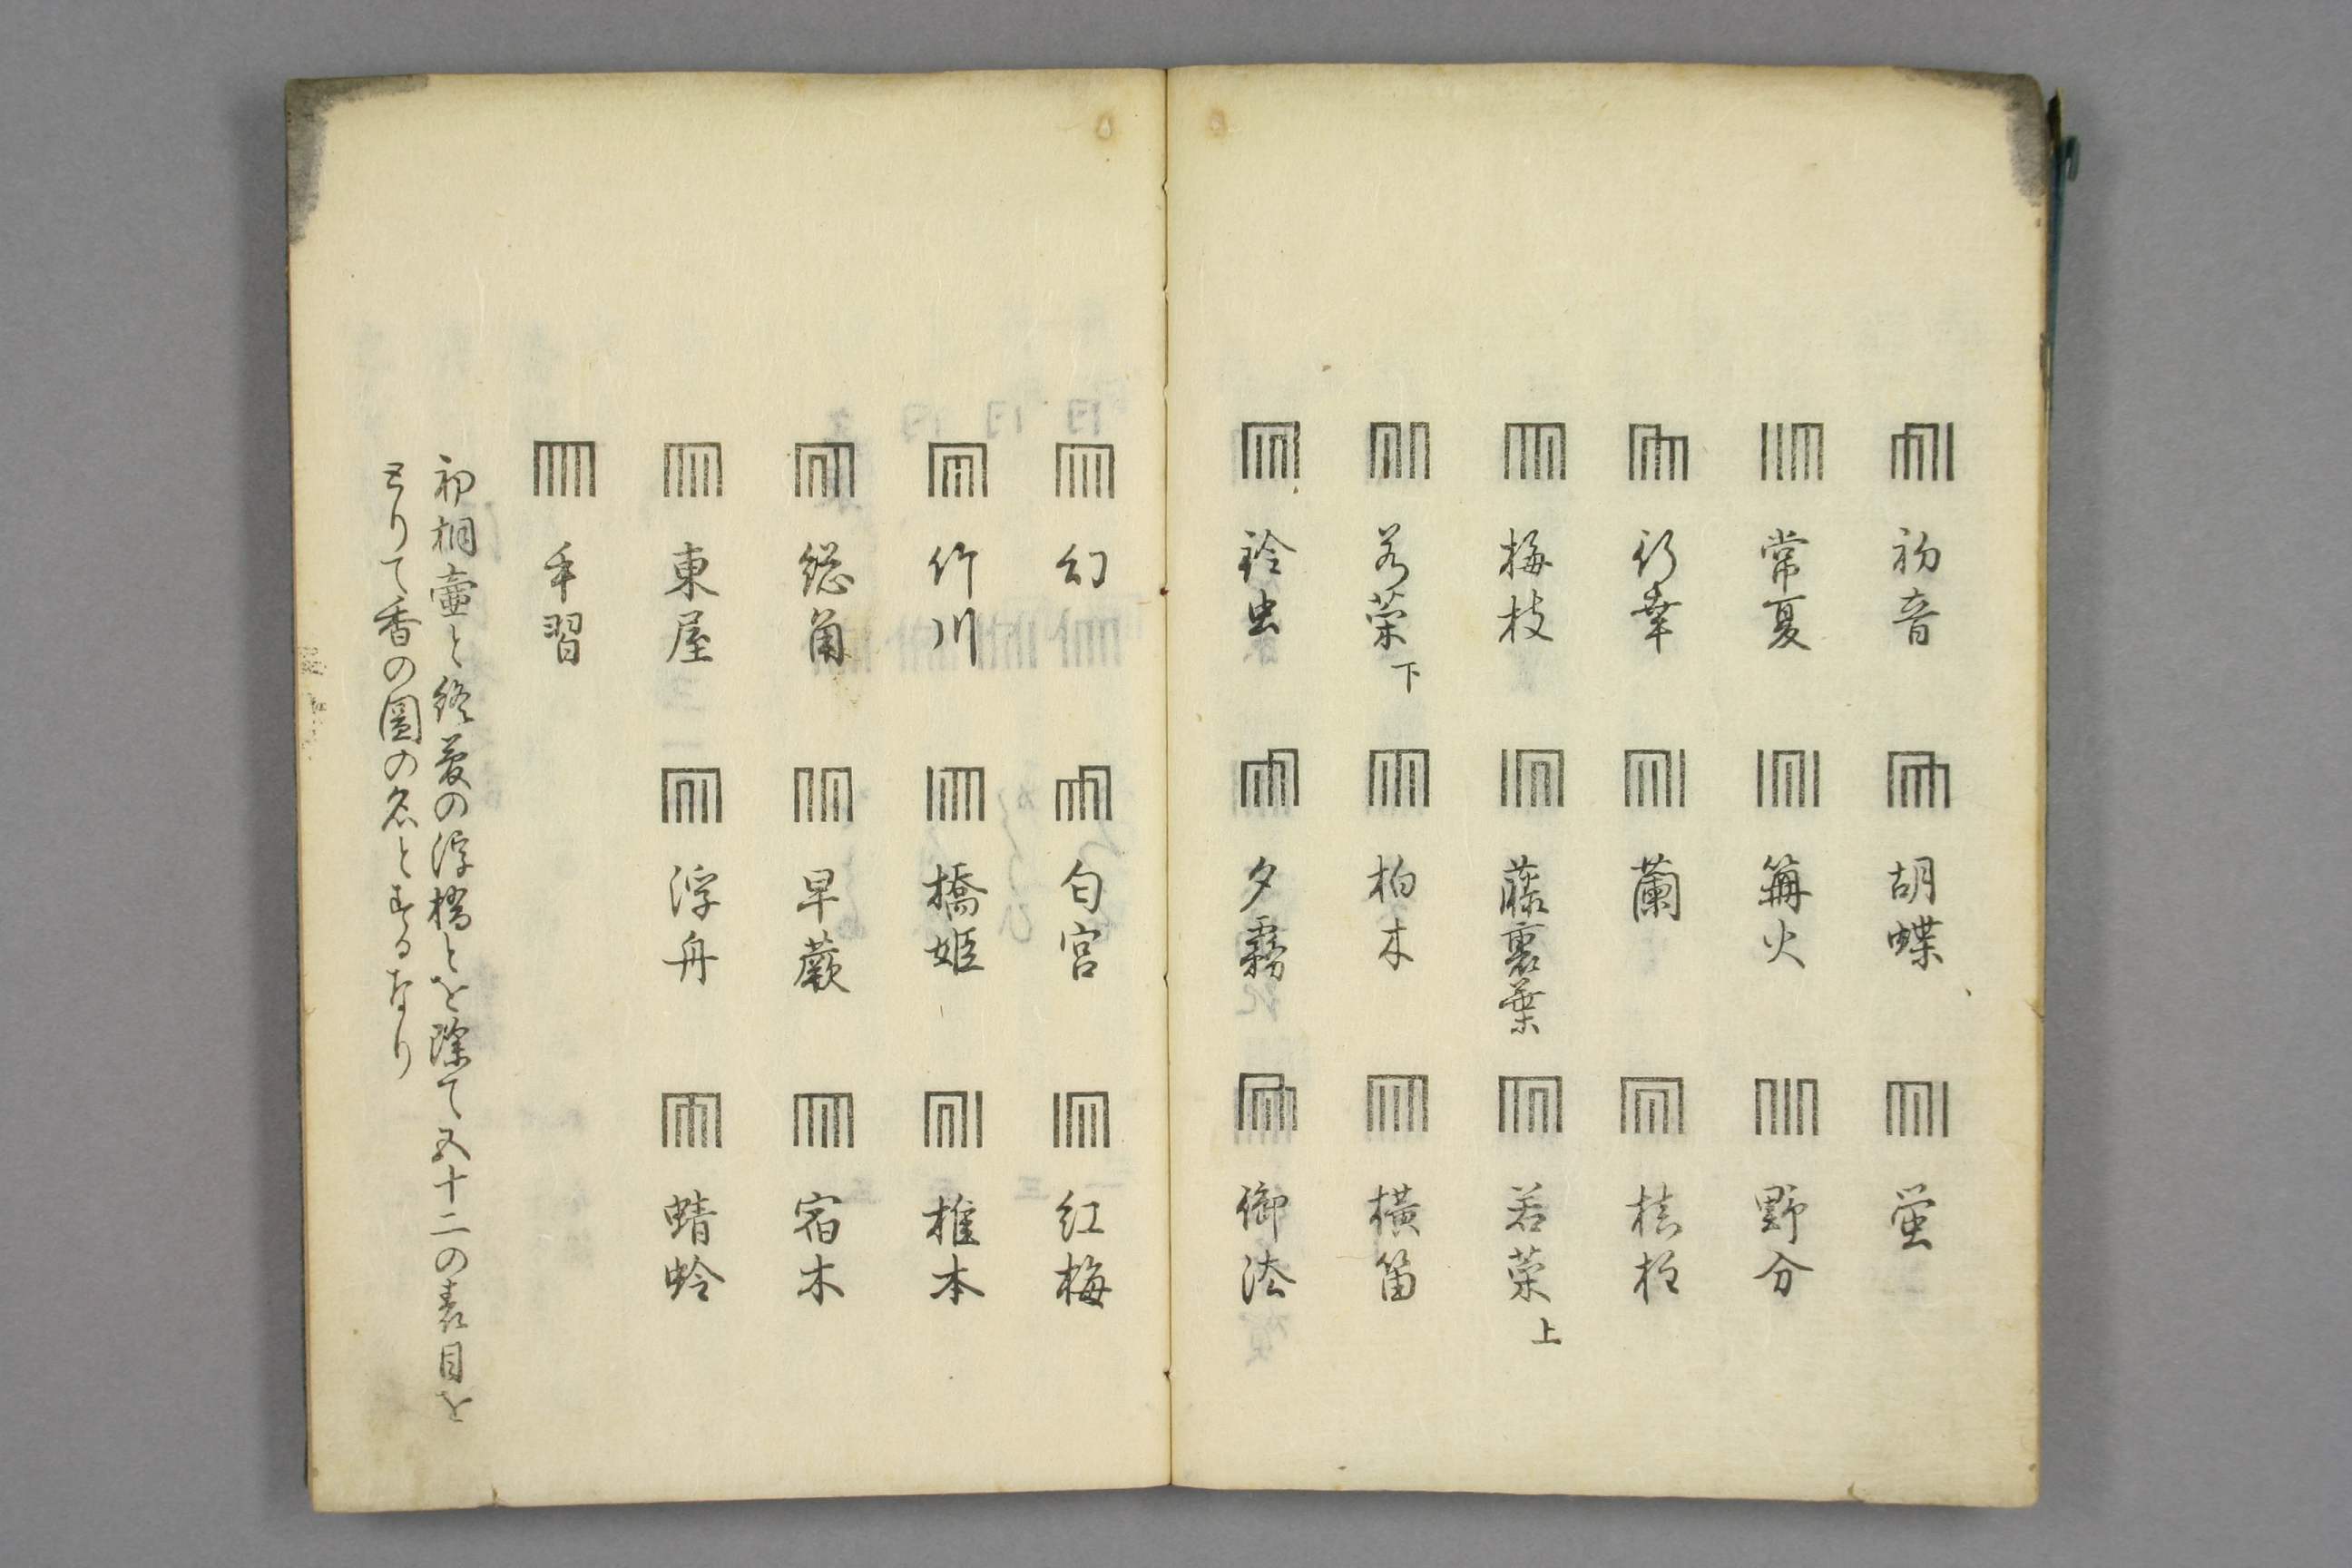 初音
胡蝶
蛍
常夏
篝火
野分
行幸
蘭
槙柱
梅枝
藤裏葉
若菜上
若菜下
柏木
横笛
鈴虫
夕霧
御法
幻
匂宮
紅梅
竹川
橋姫
椎本
総角
早蕨
宿木
東屋
浮舟
蜻蛉
手習
初桐壷と終夢の浮橋とを除て五十二の表目を
とりて香の圖の名とするなり